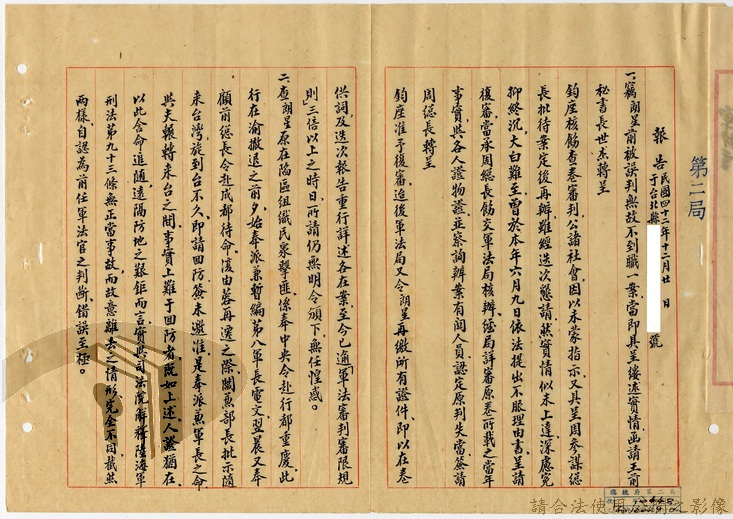 第二局
報告 民國四十二年十二月廿 日
于台北縣 號
一、竊朗星前被誤判無故不到職一案當即具呈一縷述實情函請王前
秘書長世杰轉呈
鈞座核飭查卷審判公諸社會因以未蒙指示又具呈周參謀總
長批待案定後再辦雖經迭次懇請然實情似未上達深慮冤
抑終沉大白難至曾於本年六月九日依法提出不服理由書呈請
復審當承周總長飭交軍法局核辦經局詳審原卷所載之當年
事實與各人證物證並察詢辦案有關人員認定原判失當簽請
周總長轉呈
鈞座准予復審迨後軍法局又令朗星再繳所有證件即以在卷
供詞及迭次報告重行詳述各在案至今已逾「軍法審判審限規
則」三倍以上之時日所請仍無明令頒下無任惶惑。
二、查朗星原在陷區組織民眾擊匪係奉中央令赴行都重慶此
行在渝撤退之前夕始奉派兼暫編第八軍長電文翌晨又奉
顧前總長令赴成都待命後由蓉再遷之際關兼部長批示隨
來台灣旅到台不久即請回防簽未邀准是奉派兼軍長之命
與夫輾轉來台之間事實上難于回防者既如上述人證猶在
以此含命追随遠隔防地之艱鉅而言實與司法院解釋陸海軍
刑法第九十三條無正當事故而故意離去之情形完全不同截然
兩樣自認為前任軍法官之判斷錯誤至極。
總統府第二局
請合法使用公開之影像